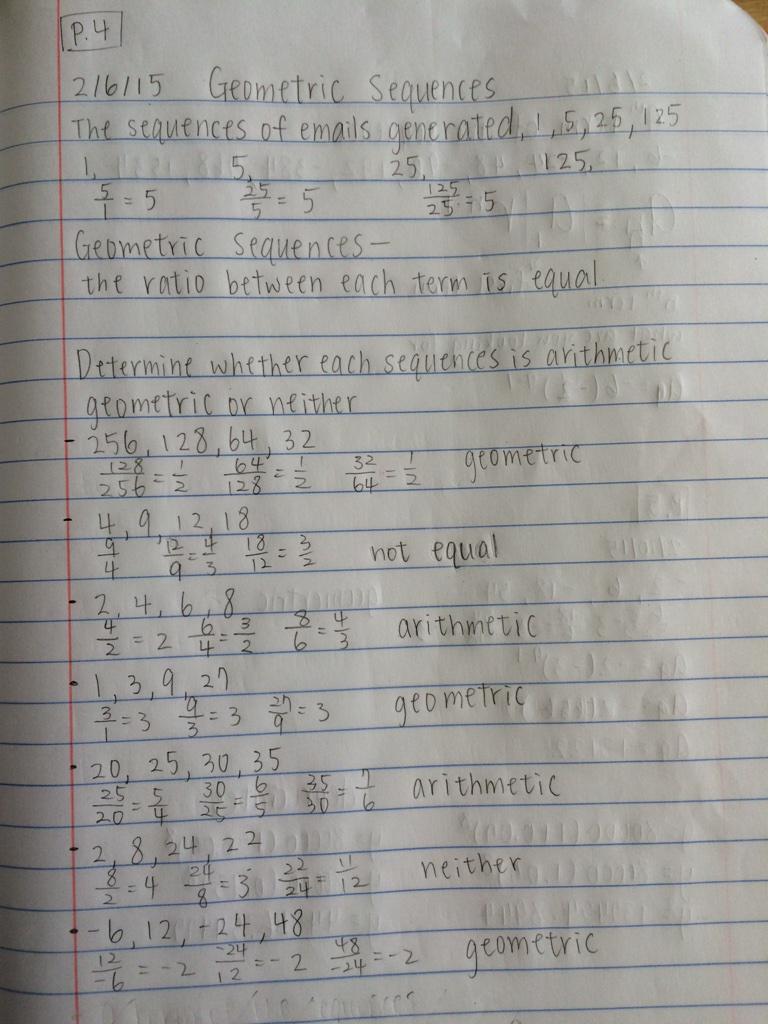 P.4
2/6/15 Geometric Sequences
The sequences of emails generated, 1, 5, 25, 125
1, 5, 25, 125,
5/1 = 5 25/5 = 5 125/25 = 5
Geometric Sequences—
the ratio between each term is equal.
Determine whether each sequences is arithmetic
geometric or neither
- 256, 128, 64, 32
128/256 = 1/2 64/128 = 1/2 32/64 = 1/2 geometric
- 4, 9, 12, 18
9/4 12/9 = 4/3 18/12 = 3/2 not equal
- 2, 4, 6, 8
4/2 = 2 6/4 = 3/2 8/6 = 4/3 arithmetic
- 1, 3, 9, 27
3/1 = 3 9/3 = 3 27/9 = 3 geometric
- 20, 25, 30, 35
25/20 = 5/4 30/25 = 6/5 35/30 = 7/6 arithmetic
- 2, 8, 24, 22
8/2 = 4 24/8 = 3 22/24 = 11/12 neither
- -6, 12, -24, 48
12/-6 = -2 -24/12 = -2 48/-24 = -2 geometric